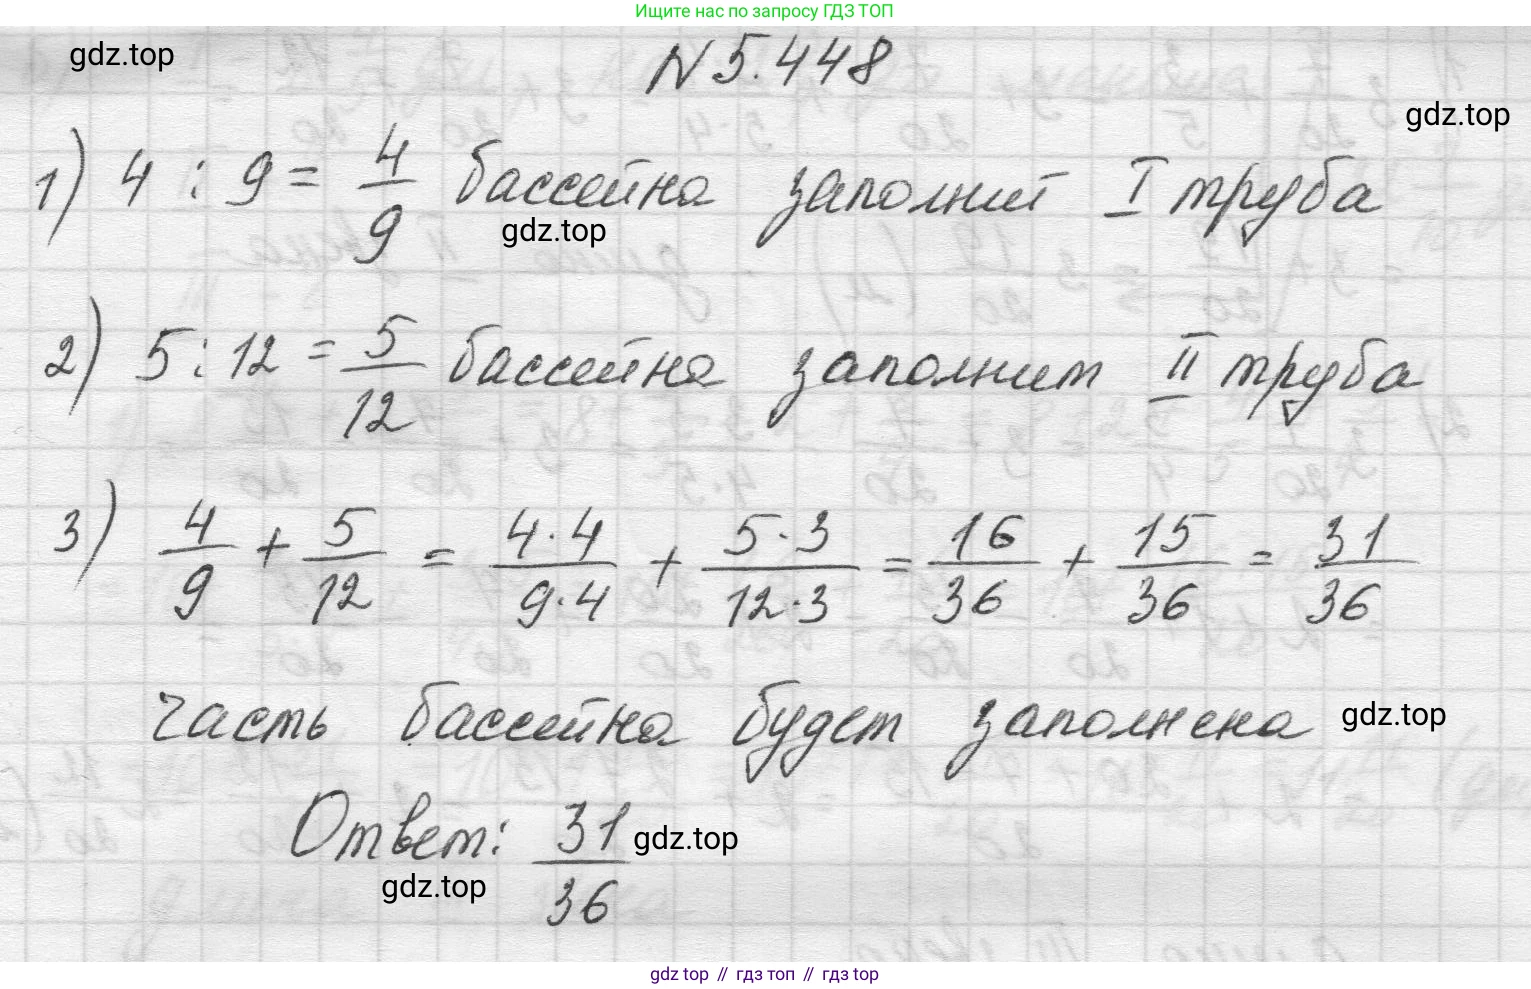 Ищите нас по запросу ГДЗ ТОП
gdz.top
N 5.448
gdz.top
1) 4 : 9 = 4/9 бассейна заполнит I труба
gdz.top
2) 5 : 12 = 5/12 бассейна заполнит II труба
3) 4/9 + 5/12 = 4·4/9·4 + 5·3/12·3 = 16/36 + 15/36 = 31/36
часть бассейна будет заполнена gdz.top
Ответ: 31/36 gdz.top
gdz.top
gdz top // гдз топ // gdz top